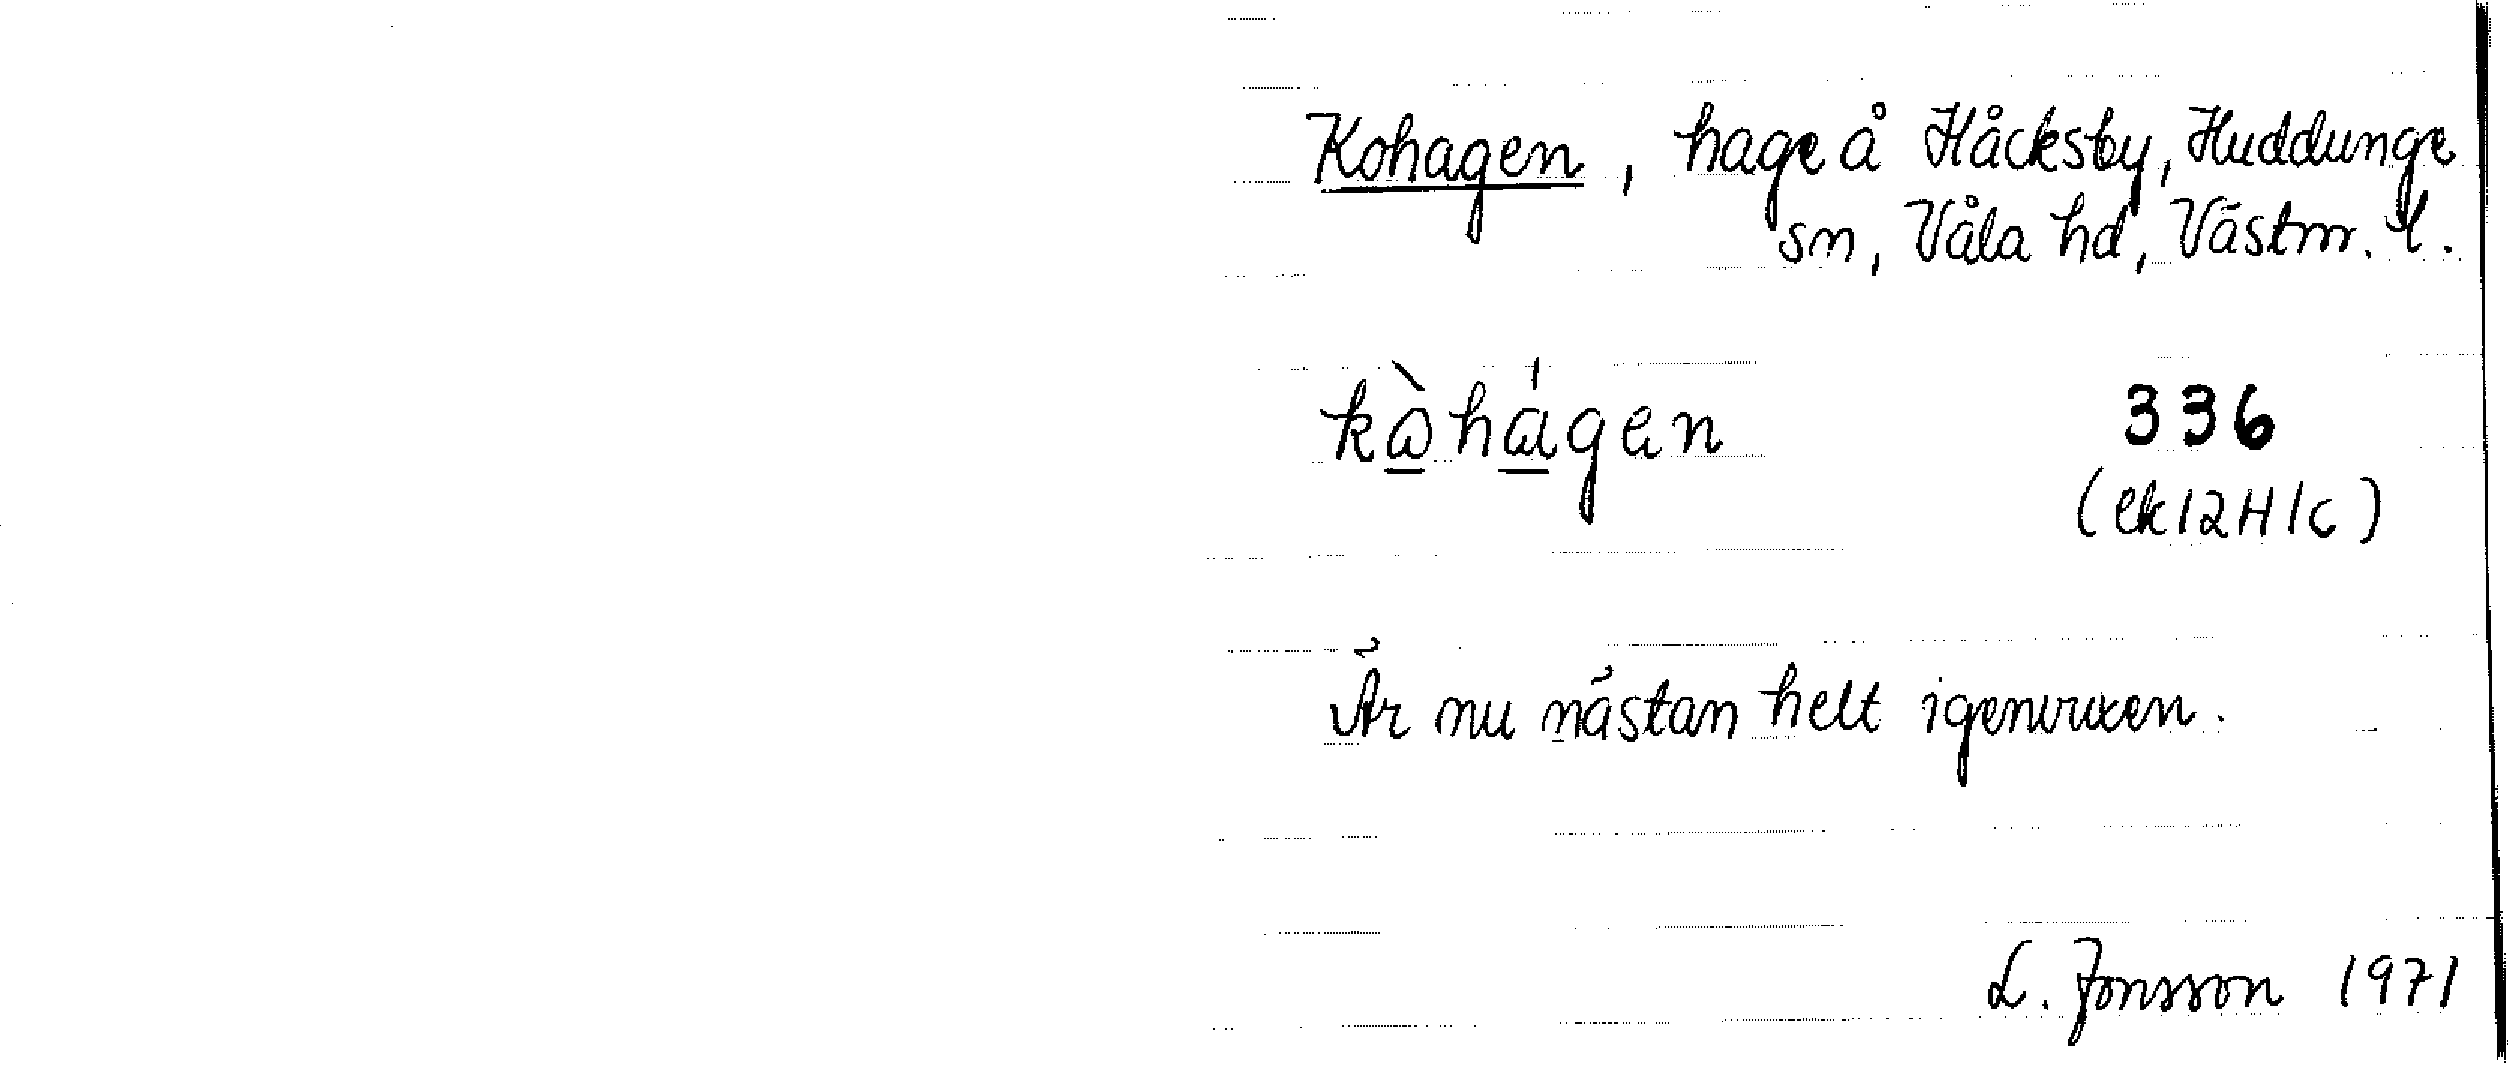 Kohagen, hage å Håcksby, Huddunge
sn, Våla hd, Västm. l.
kὼ̲hά̲gen
336
(ek 12H1c)
Är nu nästan helt igenvuxen.
L. Jonsson 1971